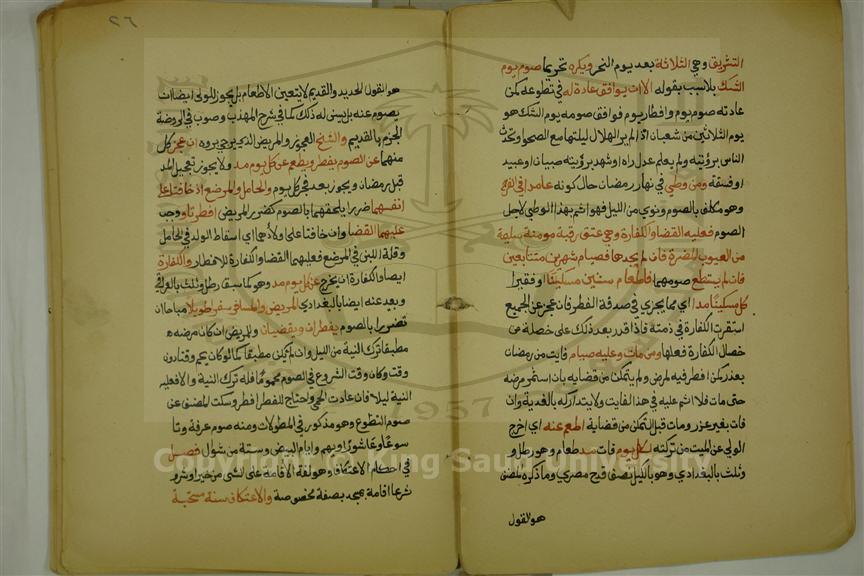 التشريق وهي الثلاثة بعد يوم النحر ويكره تحريما صوم يوم
الشك بلا سبب بقوله الا ان يوافق عادة له في تطوعه كمن
عادته صوم يوم وافطار يوم فوافق صومه يوم الشك هو
يوم الثلاثين من شعبان اذا لم ير الهلال ليلتها مع الصحو او تحدث
الناس برؤيته ولم يعلم عدل راه او شهد برؤيته صبيان او عبيد
او فسقة ومن وطي في نهار رمضان حال كونه عامدا في الفرج
وهو مكلف بالصوم ونوي من الليل فهو اثم بهذا الوطي لاجل
الصوم فعليه القضا والكفارة وهي عتق رقبة مومنة سليمة
من العيوب المضرة فان لم يجدها فصيام شهرين متتابعين
فان لم يستطع صومهما فاطعام ستين مسكينا او فقيرا
كل مسكينا مدا اي مما يجزي في صدقة الفطر فان عجز عن الجميع
استقرت الكفارة في ذمته فاذا قدر بعد ذلك على خصلة من
خصال الكفارة فعلها ومن مات وعليه صيام فايت من رمضان
بعذر كمن افطر فيه لمرض ولم يتمكن من قضايه بان استمر مرضه
حتى مات فلا اثم عليه في هذا الفايت ولا يتدارك له بالفدية وان
فات بغير عذر ومات قبل التمكن من قضايه اطعم عنه اي اخرج
الولي عن الميت من تركته لكل يوم فات مد طعام وهو رطل و
وثلث بالبغدادي وهو بالكيل نصف قدح مصري وما ذكره المصنف
هو القول
٢٦
هو القول الجديد والقديم لا يتعين الاطعام بل يجوز للولي ايضا ان
يصوم عنه بل يسن له ذلك كما في شرح المهذب وصوب في الروضة
الجزم بالقديم والشيخ العجوز والمريض الذي يرجي بروه ان عجز كل
منهما عن الصوم يفطر ويطعم عن كل يوم مد ولا يجوز تعجيل المد
قبل رمضان ويجوز بعد فجر كل يوم والحامل والمرضع اذ خافتا على
انفسهما ضررا يلحقهما بالصوم كضرر المريض افطرتا ووجب
عليهما القضا وان خافتا على ولادهما اي اسقاط الولد في الحامل
وقلة اللبن في المرضع فعليهما القضا والكفارة للافطار والكفارة
ايضا والكفارة ان يخرج عن كل يوم مد وهو كما سبق رطل وثلث بالعراقي
ويعبر عنه ايضا بالبغدادي المريض والمسافر سفر طويلا مباحا ان
تضرر بالصوم يفطران ويقضيان وللمريض ان كان مرضه
مطبقا ترك النية من الليل وان لم يكن مطبقا كما لو كان يحم وقتا دون
وقت وكان وقت الشروع في الصوم محموما فله ترك النية والا فعليه
النية ليلا فان عادت الحمي واحتاج للفطر افطر وسكت المصنف عن
صوم التطوع وهو مذكور في المطولات ومنه صوم عرفة وتا
سوعا وعاشورا وايام البيض وستة من شوال فصل
في احكام الاعتكاف وهو لغة الاقامة على الشي من خير او شر و
شرعا اقامة بمسجد بصفة مخصوصة والاعتكاف سنة مستحبة
Copyright © King Saud University
1957